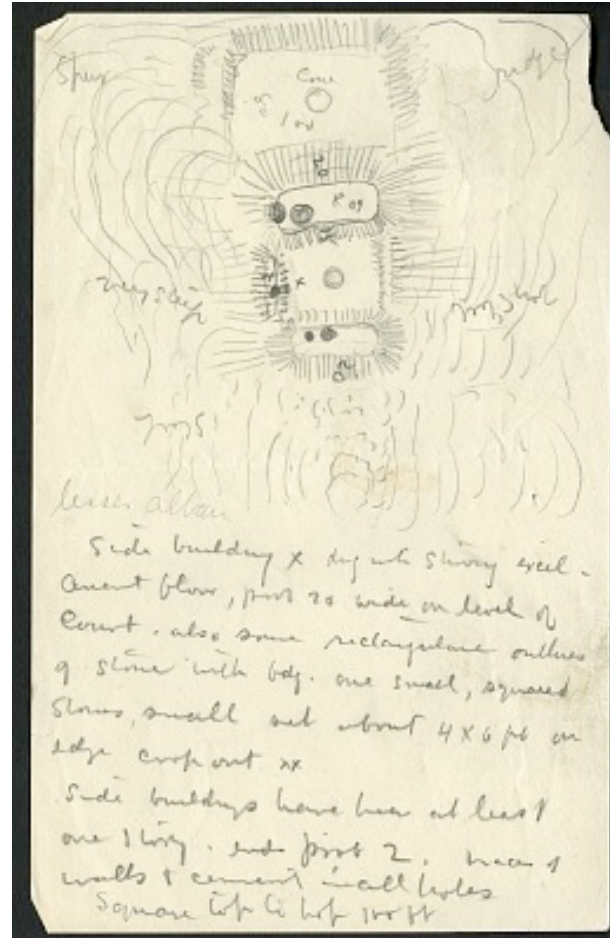 Spur
ridge
Cone
100
20
60
x
very steep
lesser alban
Side building x dug into showing excel-
cement floor, 20 wide on level of
Court. also some rectangular outlines
of stone with bdg. one small, squared
stones, small set about 4 x 6 ft on
edge crop out xx
Side buildings have been at least
one story. ends 2. traces of
walls & cement in all holes
Square top to 100 ft